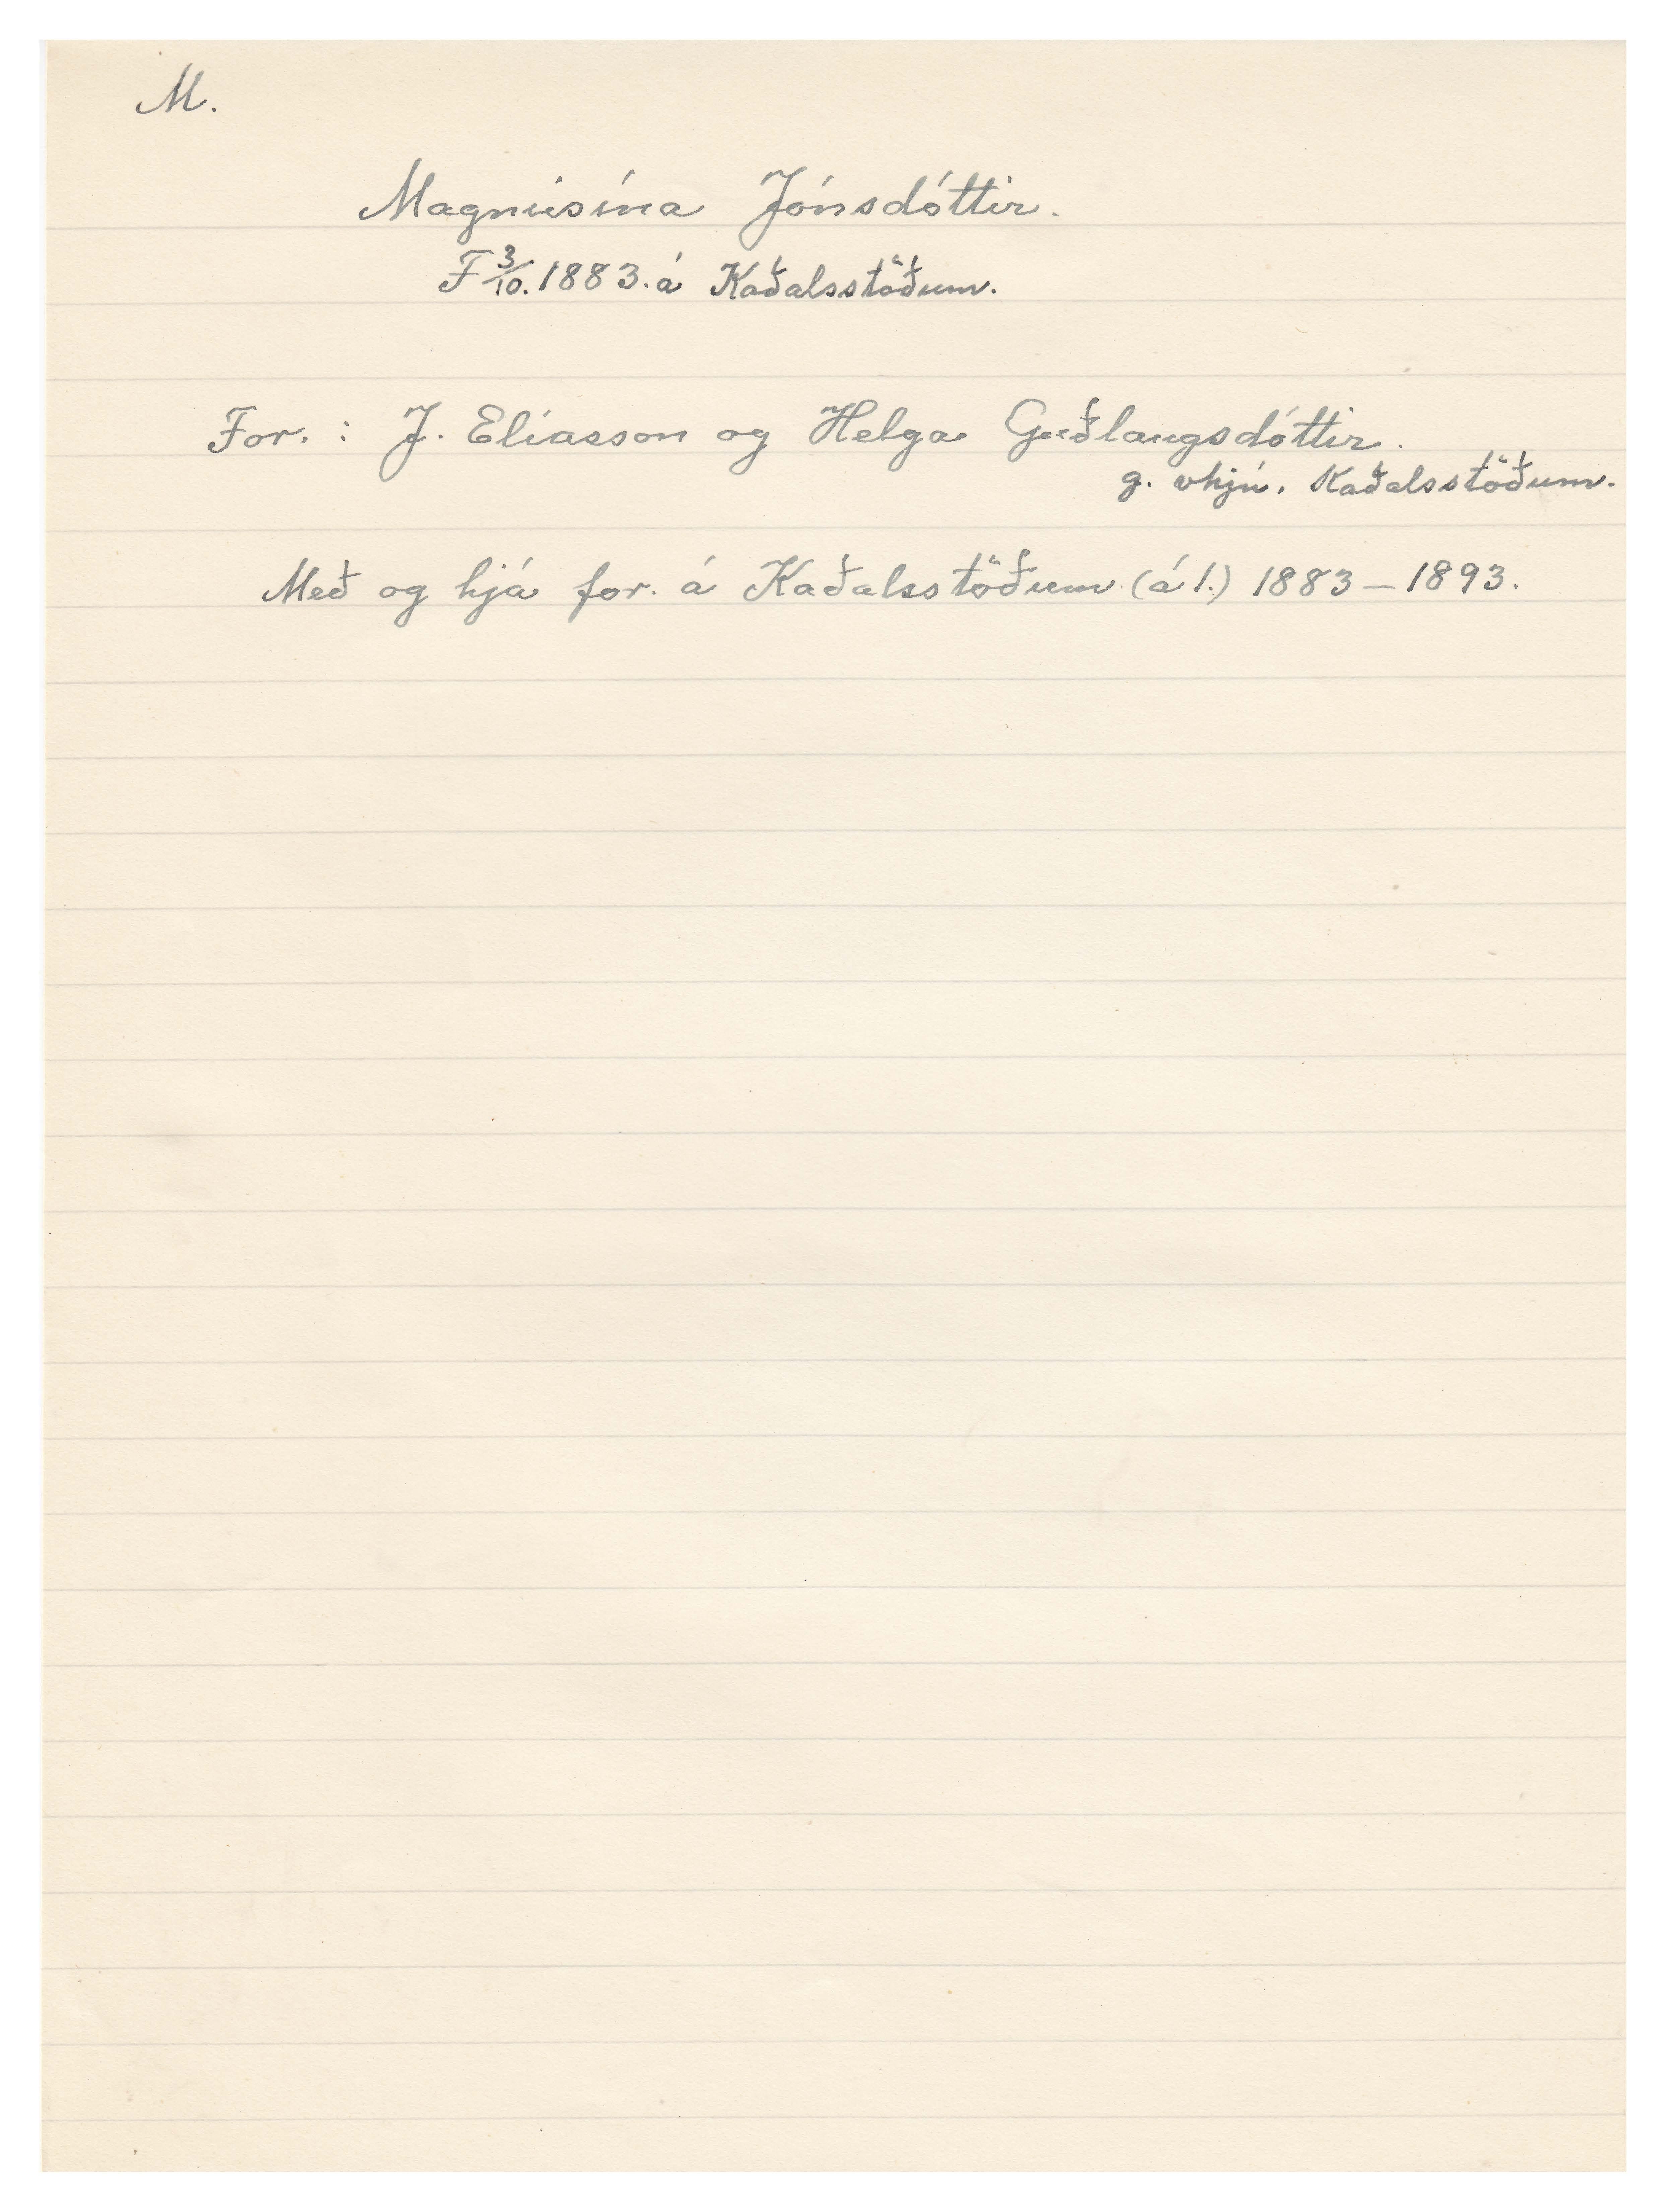 M.
Magnúsína Jónsdóttir.
F 3/10. 1883. á Kaðalsstöðum.
For. : J. Elíasson og Helga Guðlaugsdóttir.
g. vhjú. Kaðalsstöðum.
Með og hjá for. á Kaðalsstöðum (á 1.) 1883 – 1893.